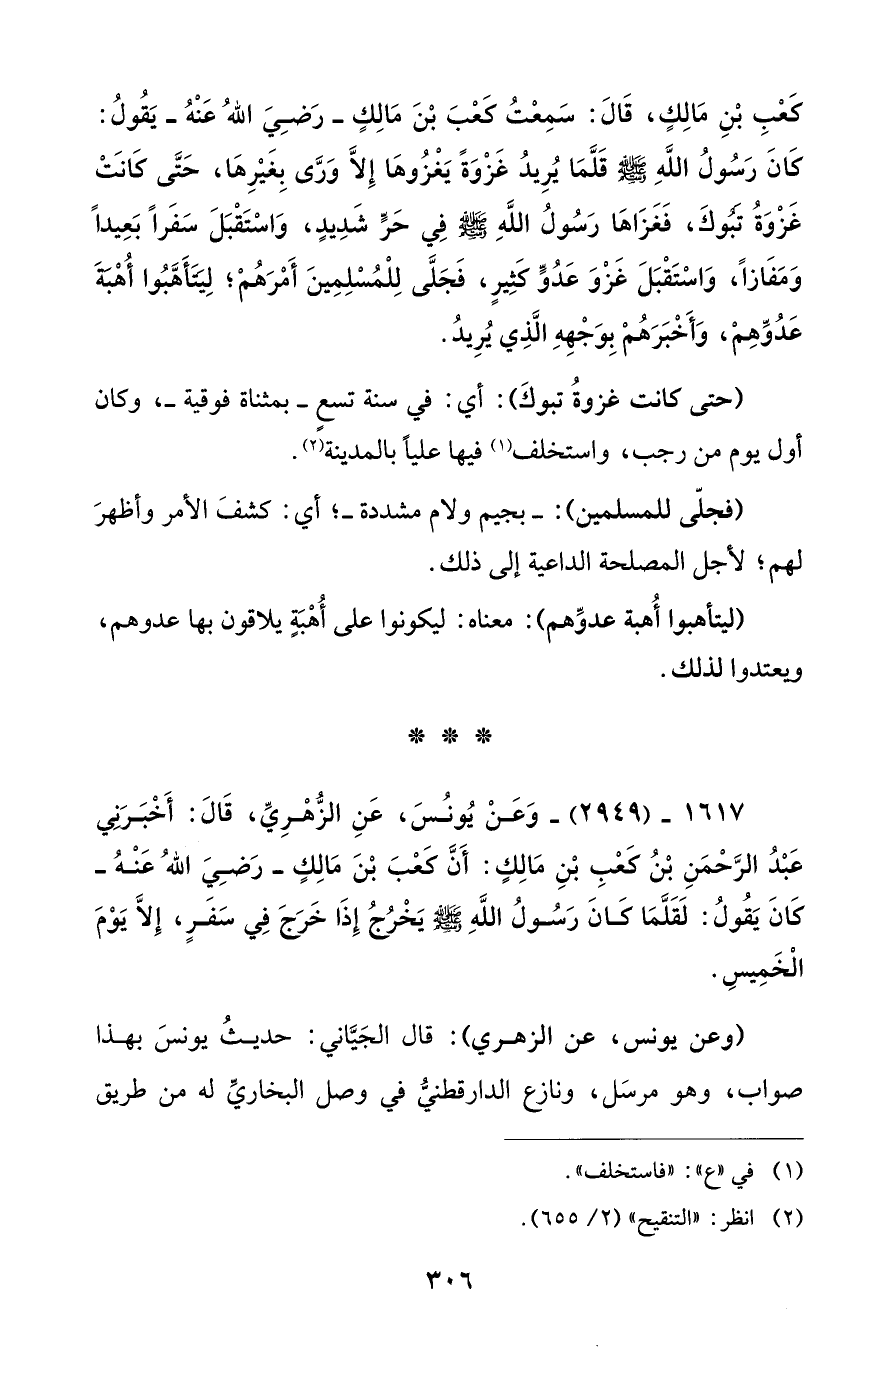 كَعْبِ بْنِ مَالِكٍ، قَالَ: سَمِعْتُ كَعْبَ بْنَ مَالِكٍ ـ رَضِيَ اللهُ عَنْهُ ـ يَقُولُ:
كَانَ رَسُولُ اللَّهِ ﷺ قَلَّمَا يُرِيدُ غَزْوَةً يَغْزُوهَا إِلاَّ وَرَّى بِغَيْرِهَا، حَتَّى كَانَتْ
غَزْوَةُ تَبُوكَ، فَغَزَاهَا رَسُولُ اللَّهِ ﷺ فِي حَرٍّ شَدِيدٍ، وَاسْتَقْبَلَ سَفَراً بَعِيداً
وَمَفَازاً، وَاسْتَقْبَلَ غَزْوَ عَدُوٍّ كَثِيرٍ، فَجَلَّى لِلْمُسْلِمِينَ أَمْرَهُمْ؛ لِيَتَأَهَّبُوا أُهْبَةَ
عَدُوِّهِمْ، وَأَخْبَرَهُمْ بِوَجْهِهِ الَّذِي يُرِيدُ.
(حتى كانت غزوةُ تبوكَ): أي: في سنة تسعٍ ـ بمثناة فوقية ـ، وكان
أول يوم من رجب، واستخلف(١) فيها علياً بالمدينة(٢).
(فجلَّى للمسلمين): ـ بجيم ولام مشددة ـ؛ أي: كشفَ الأمر وأظهرَ
لهم؛ لأجل المصلحة الداعية إلى ذلك.
(ليتأهبوا أُهبة عدوِّهم): معناه: ليكونوا على أُهْبَةٍ يلاقون بها عدوهم،
ويعتدوا لذلك.
* * *
١٦١٧ ـ (٢٩٤٩) ـ وَعَنْ يُونُسَ، عَنِ الزُّهْرِيِّ، قَالَ: أَخْبَرَنِي
عَبْدُ الرَّحْمَنِ بْنُ كَعْبِ بْنِ مَالِكٍ: أَنَّ كَعْبَ بْنَ مَالِكٍ ـ رَضِيَ اللهُ عَنْهُ ـ
كَانَ يَقُولُ: لَقَلَّمَا كَانَ رَسُولُ اللَّهِ ﷺ يَخْرُجُ إِذَا خَرَجَ فِي سَفَرٍ، إِلاَّ يَوْمَ
الْخَمِيسِ.
(وعن يونس، عن الزهري): قال الجَيَّاني: حديثُ يونسَ بهذا
صواب، وهو مرسَل، ونازع الدارقطنيُّ في وصل البخاريِّ له من طريق
(١) في «ع»: «فاستخلف».
(٢) انظر: «التنقيح» (٢/ ٦٥٥).
٣٠٦